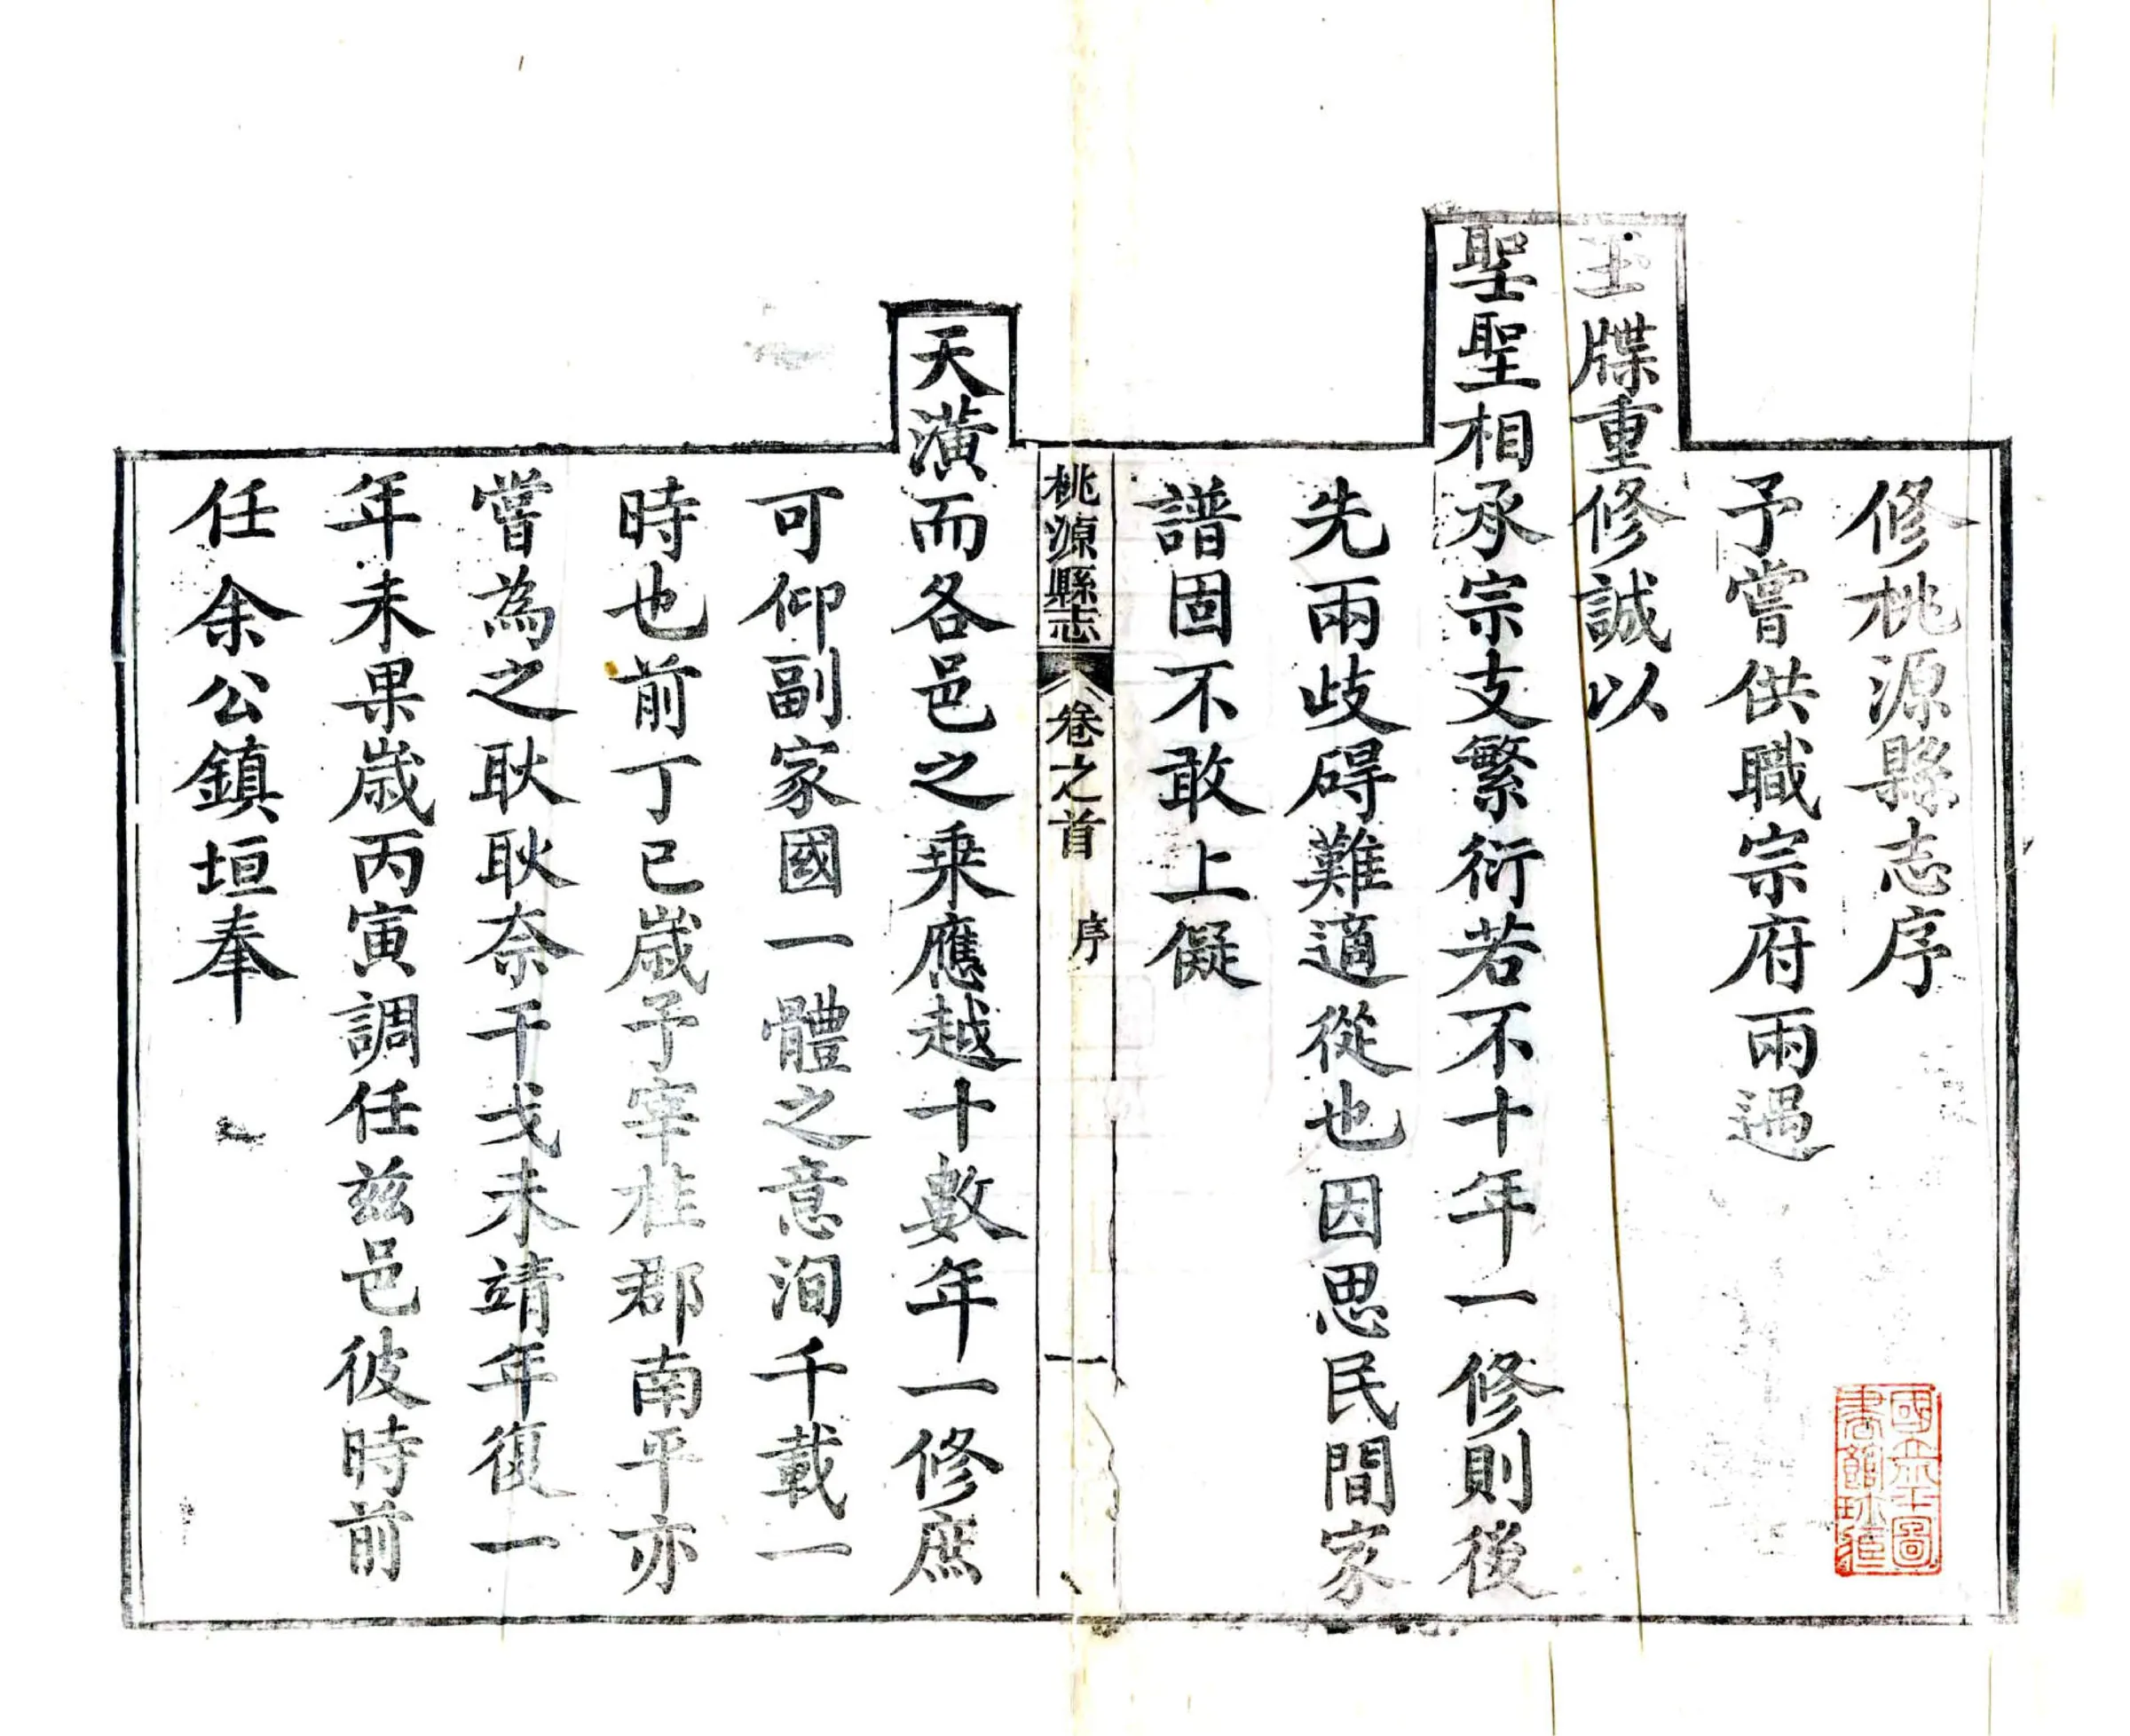 修桃源縣志序
予嘗供職宗府兩遇
玉牒重修誠以
聖聖相承宗支繁衍若不十年一修則後
先兩歧碍難適從也因思民間家
譜固不敢上儗
桃源縣志 卷之首 序 一
天潢而各邑之乗應越十數年一修庶
可仰副家國一體之意洵千載一
時也前丁巳歲予宰桂郡南平亦
嘗為之耿耿奈干戈未靖年復一
年未果歲丙寅調任兹邑彼時前
任余公鎮垣奉
國立北平圖
書館珍藏